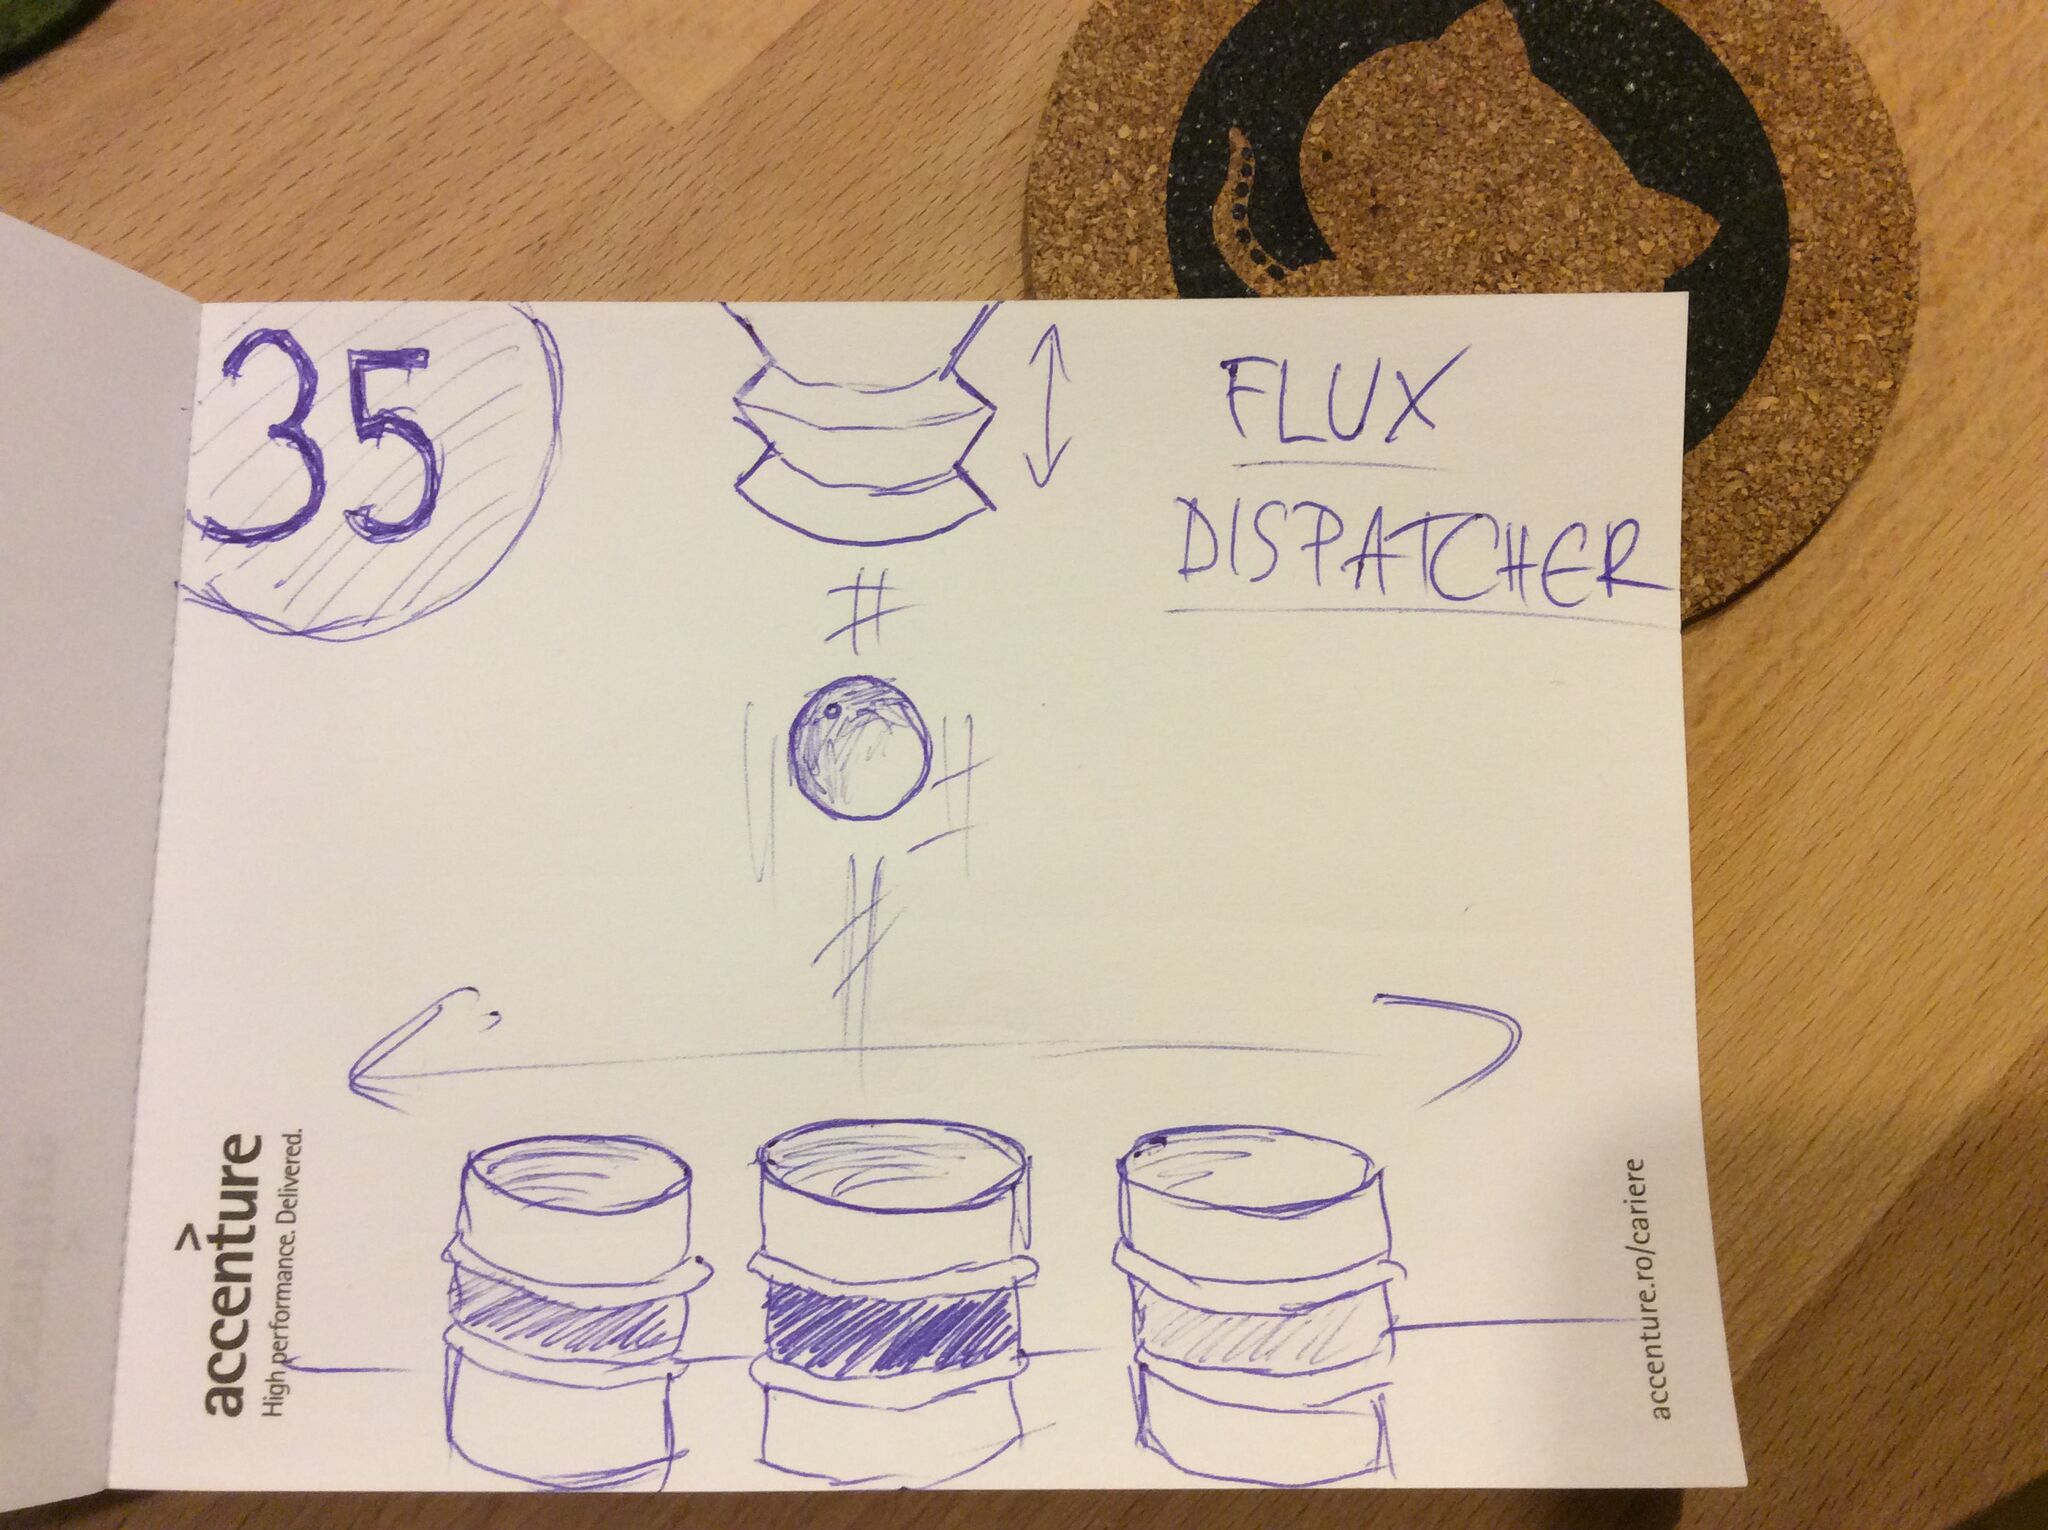 35
FLUX
DISPATCHER
accenture
High performance. Delivered.
accenture.ro/cariere